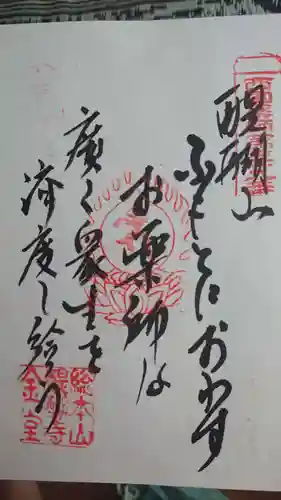 醍醐山
ふもとにおわす
お薬師は
廣く衆生を
済度し給う
總本山
醍醐寺
金堂